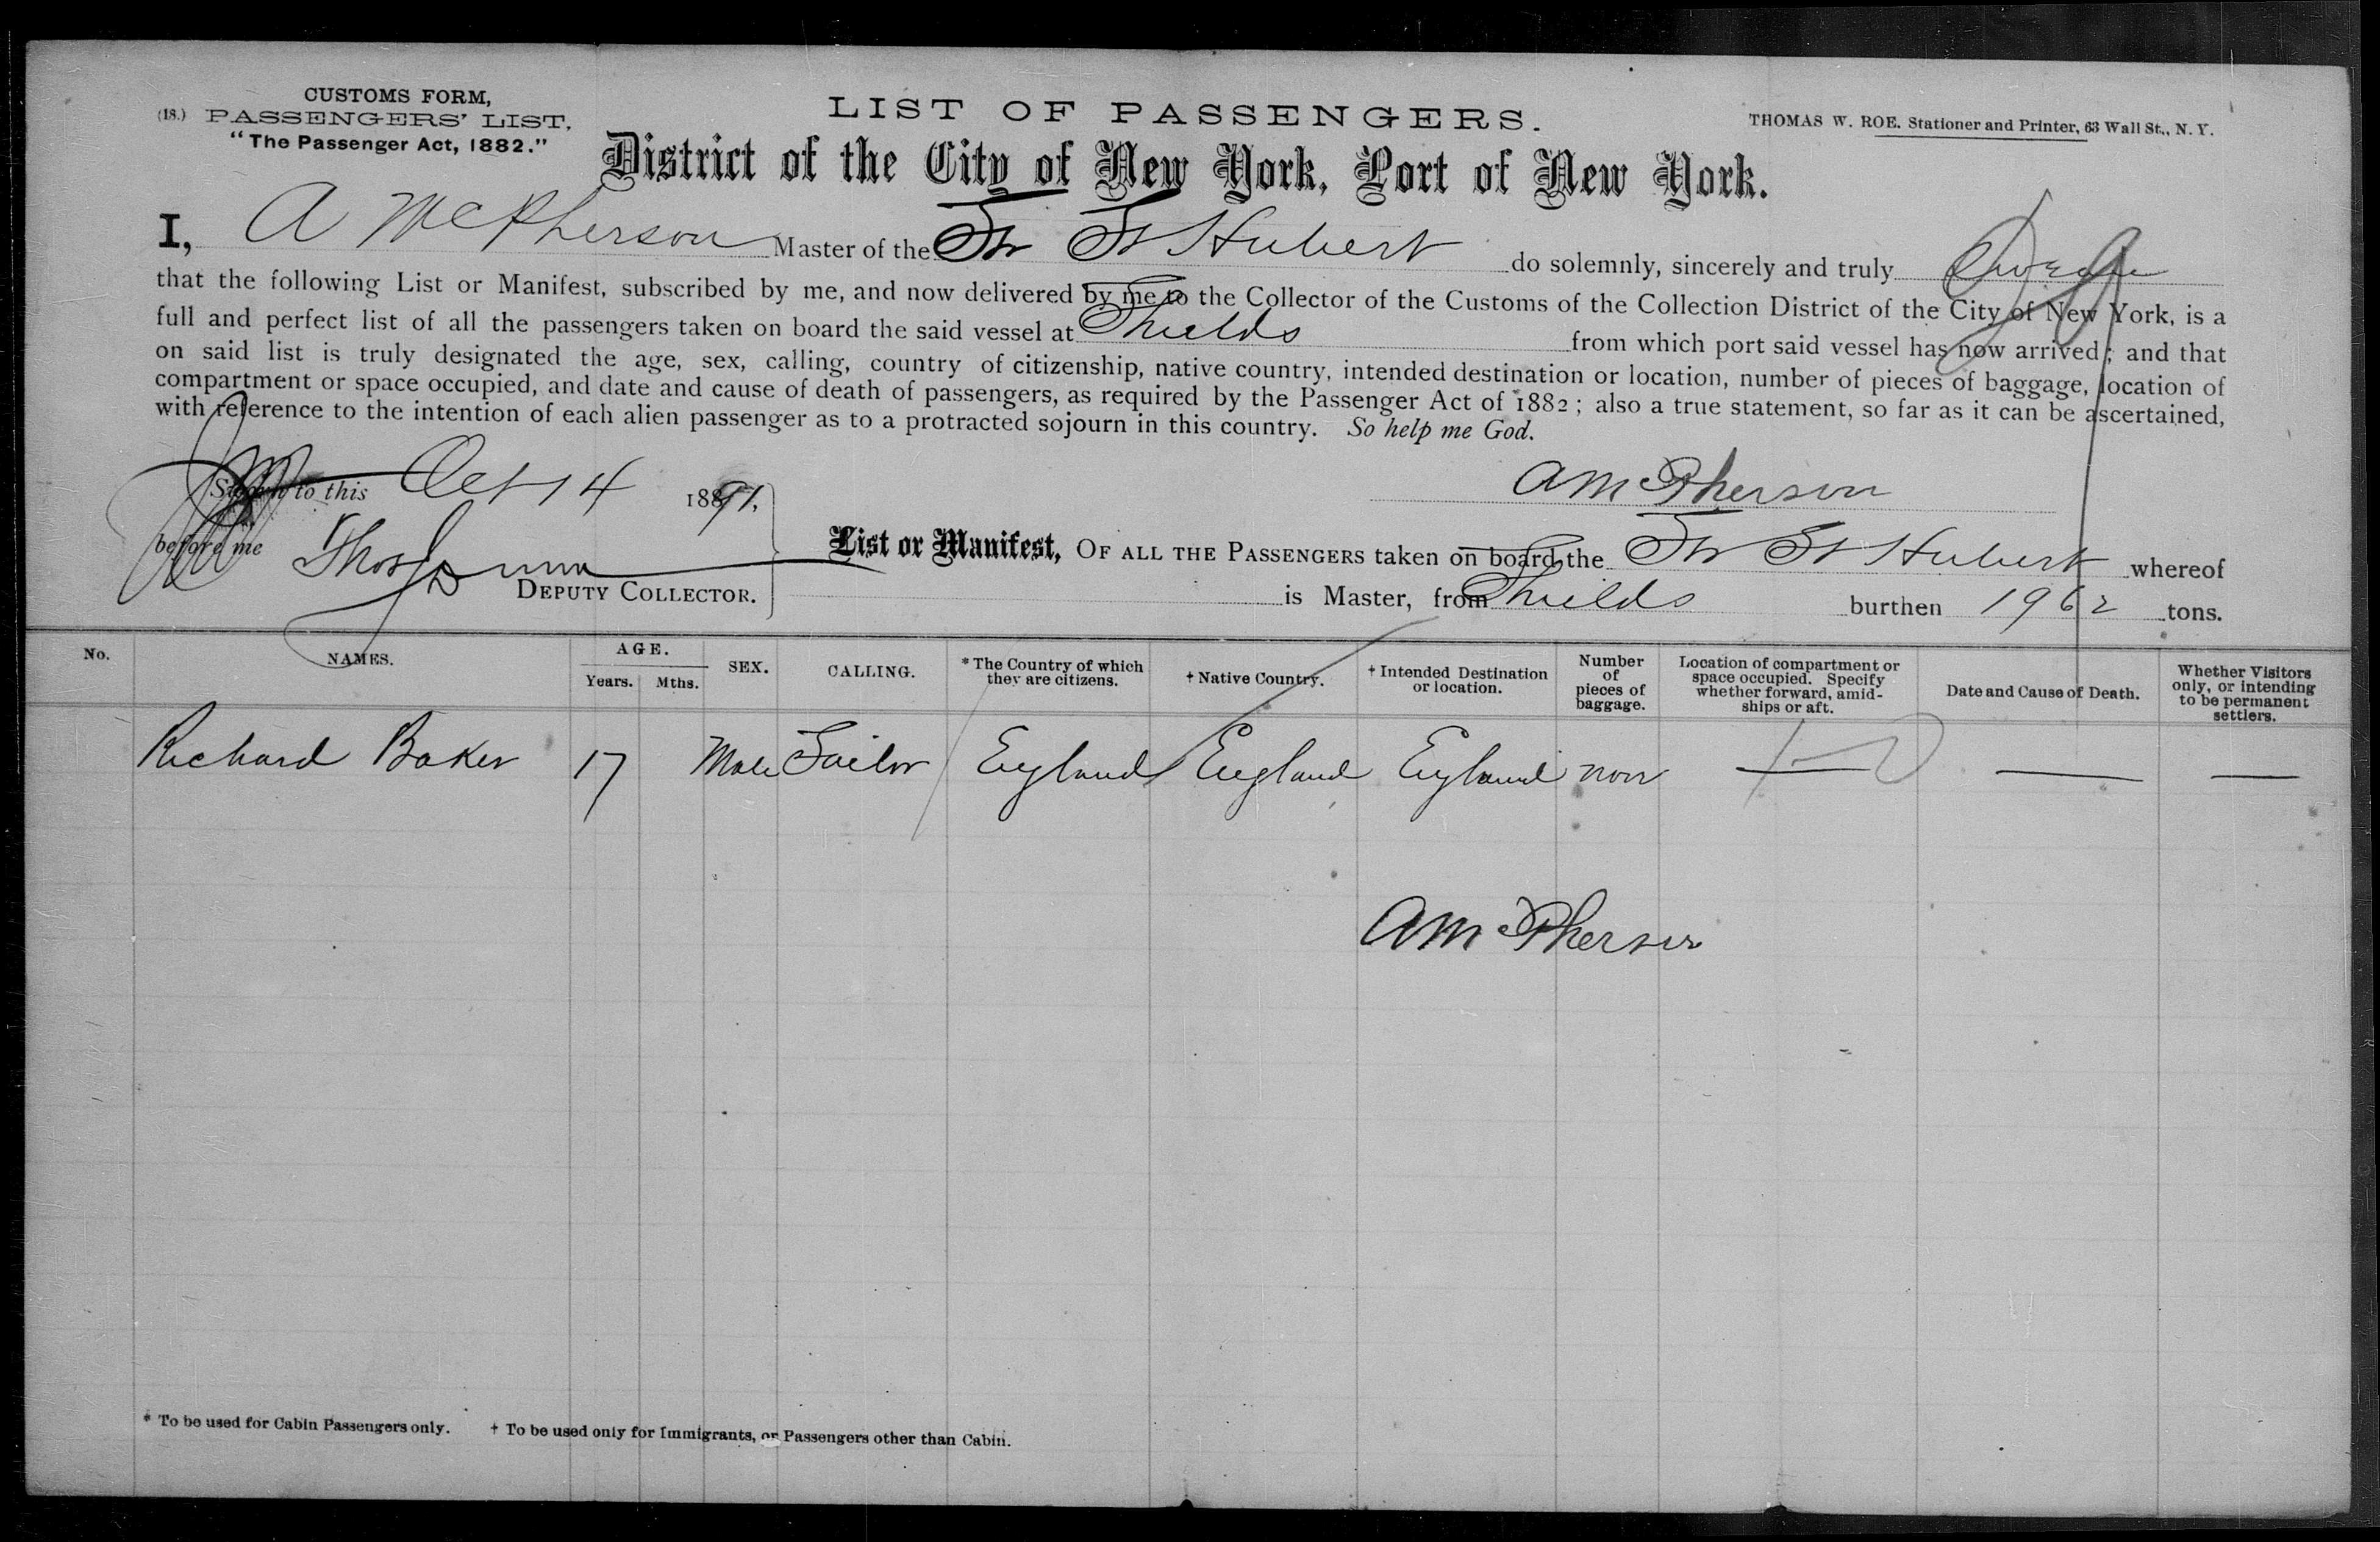 CUSTOMS FORM,
(18.) PASSENGERS' LIST.
"The Passenger Act, 1882."
LIST OF PASSENGERS.
THOMAS W. ROE. Stationer and Printer, 63 Wall St., N. Y.
District of the City of New York, Port of New York.
I, A McPherson Master of the Str St Hubert do solemnly, sincerely and truly Swear
that the following List or Manifest, subscribed by me, and now delivered by me to the Collector of the Customs of the Collection District of the City of New York, is a
full and perfect list of all the passengers taken on board the said vessel at Shields from which port said vessel has now arrived; and that
on said list is truly designated the age, sex, calling, country of citizenship, native country, intended destination or location, number of pieces of baggage, location of
compartment or space occupied, and date and cause of death of passengers, as required by the Passenger Act of 1882; also a true statement, so far as it can be ascertained,
with reference to the intention of each alien passenger as to a protracted sojourn in this country. So help me God.
Sworn to this Oct 14 1891,
A McPherson
before me Thos Dunn
DEPUTY COLLECTOR.
List or Manifest, OF ALL THE PASSENGERS taken on board the Str St Hubert whereof
is Master, from Shields burthen 1962 tons.
No.
NAMES.
AGE.
Years. Mths.
SEX.
CALLING.
* The Country of which
they are citizens.
† Native Country.
† Intended Destination
or location.
Number
of
pieces of
baggage.
Location of compartment or
space occupied. Specify
whether forward, amid-
ships or aft.
Date and Cause of Death.
Whether Visitors
only, or intending
to be permanent
settlers.
Richard Baker 17 Male Sailor England England England non — — —
A McPherson
* To be used for Cabin Passengers only. † To be used only for Immigrants, or Passengers other than Cabin.